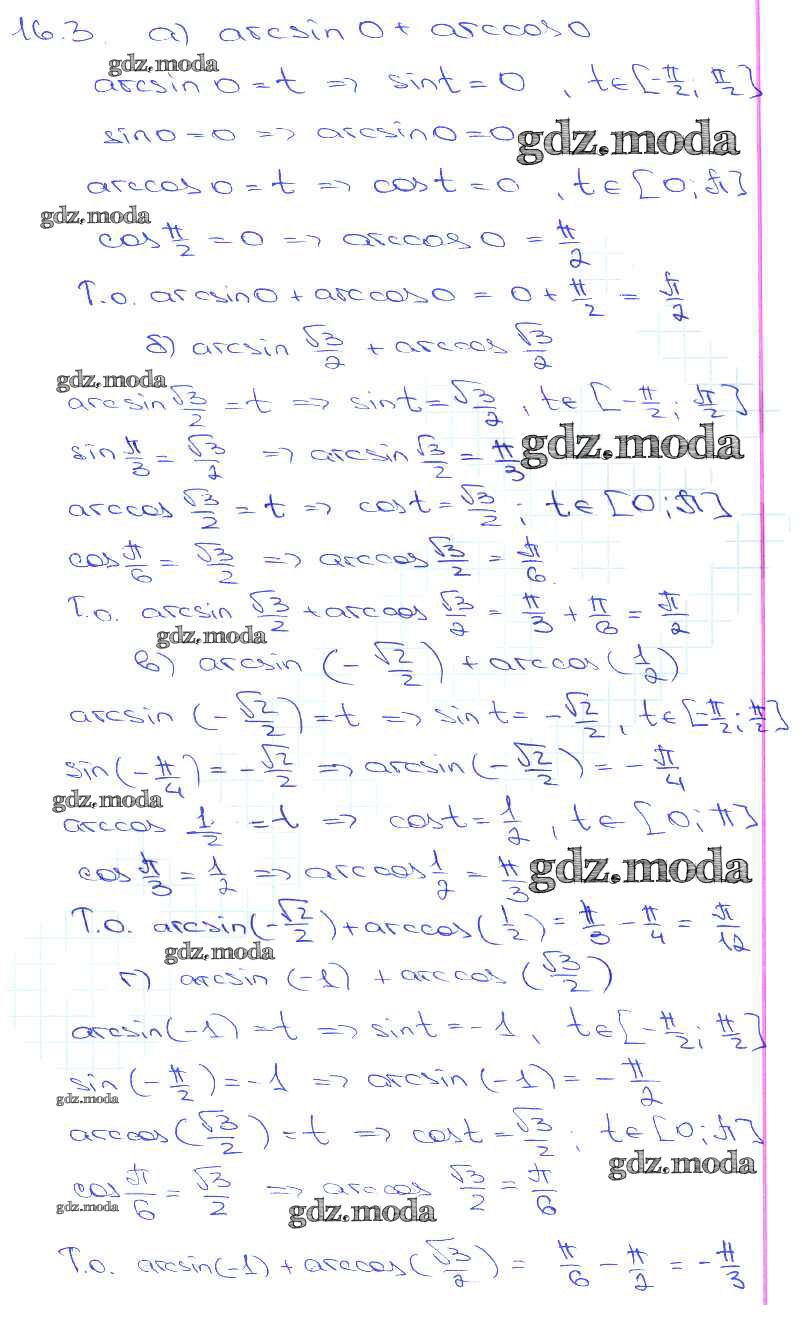 16.3. а) arcsin 0 + arccos 0
gdz.moda
arcsin 0 = t => sin t = 0 , t ∈ [-π/2; π/2]
sin 0 = 0 => arcsin 0 = 0 gdz.moda
arccos 0 = t => cos t = 0 , t ∈ [0; π]
gdz.moda
cos π/2 = 0 => arccos 0 = π/2
Т.о. arcsin 0 + arccos 0 = 0 + π/2 = π/2
б) arcsin √3/2 + arccos √3/2
gdz.moda
arcsin √3/2 = t => sin t = √3/2 , t ∈ [-π/2; π/2]
sin π/3 = √3/2 => arcsin √3/2 = π/3 gdz.moda
arccos √3/2 = t => cos t = √3/2 ; t ∈ [0; π]
cos π/6 = √3/2 => arccos √3/2 = π/6.
Т.о. arcsin √3/2 + arccos √3/2 = π/3 + π/6 = π/2
gdz.moda
в) arcsin (-√2/2) + arccos (1/2)
arcsin (-√2/2) = t => sin t = -√2/2 , t ∈ [-π/2; π/2]
sin (-π/4) = -√2/2 => arcsin (-√2/2) = -π/4
gdz.moda
arccos 1/2 = t => cos t = 1/2 , t ∈ [0; π]
cos π/3 = 1/2 => arccos 1/2 = π/3 gdz.moda
Т.о. arcsin (-√2/2) + arccos (1/2) = π/3 - π/4 = π/12
gdz.moda
г) arcsin (-1) + arccos (√3/2)
arcsin (-1) = t => sin t = -1 , t ∈ [-π/2; π/2]
sin (-π/2) = -1 => arcsin (-1) = -π/2
gdz.moda
arccos (√3/2) = t => cos t = √3/2 ; t ∈ [0; π]
gdz.moda
cos π/6 = √3/2 => arccos √3/2 = π/6
gdz.moda gdz.moda
Т.о. arcsin (-1) + arccos (√3/2) = π/6 - π/2 = -π/3